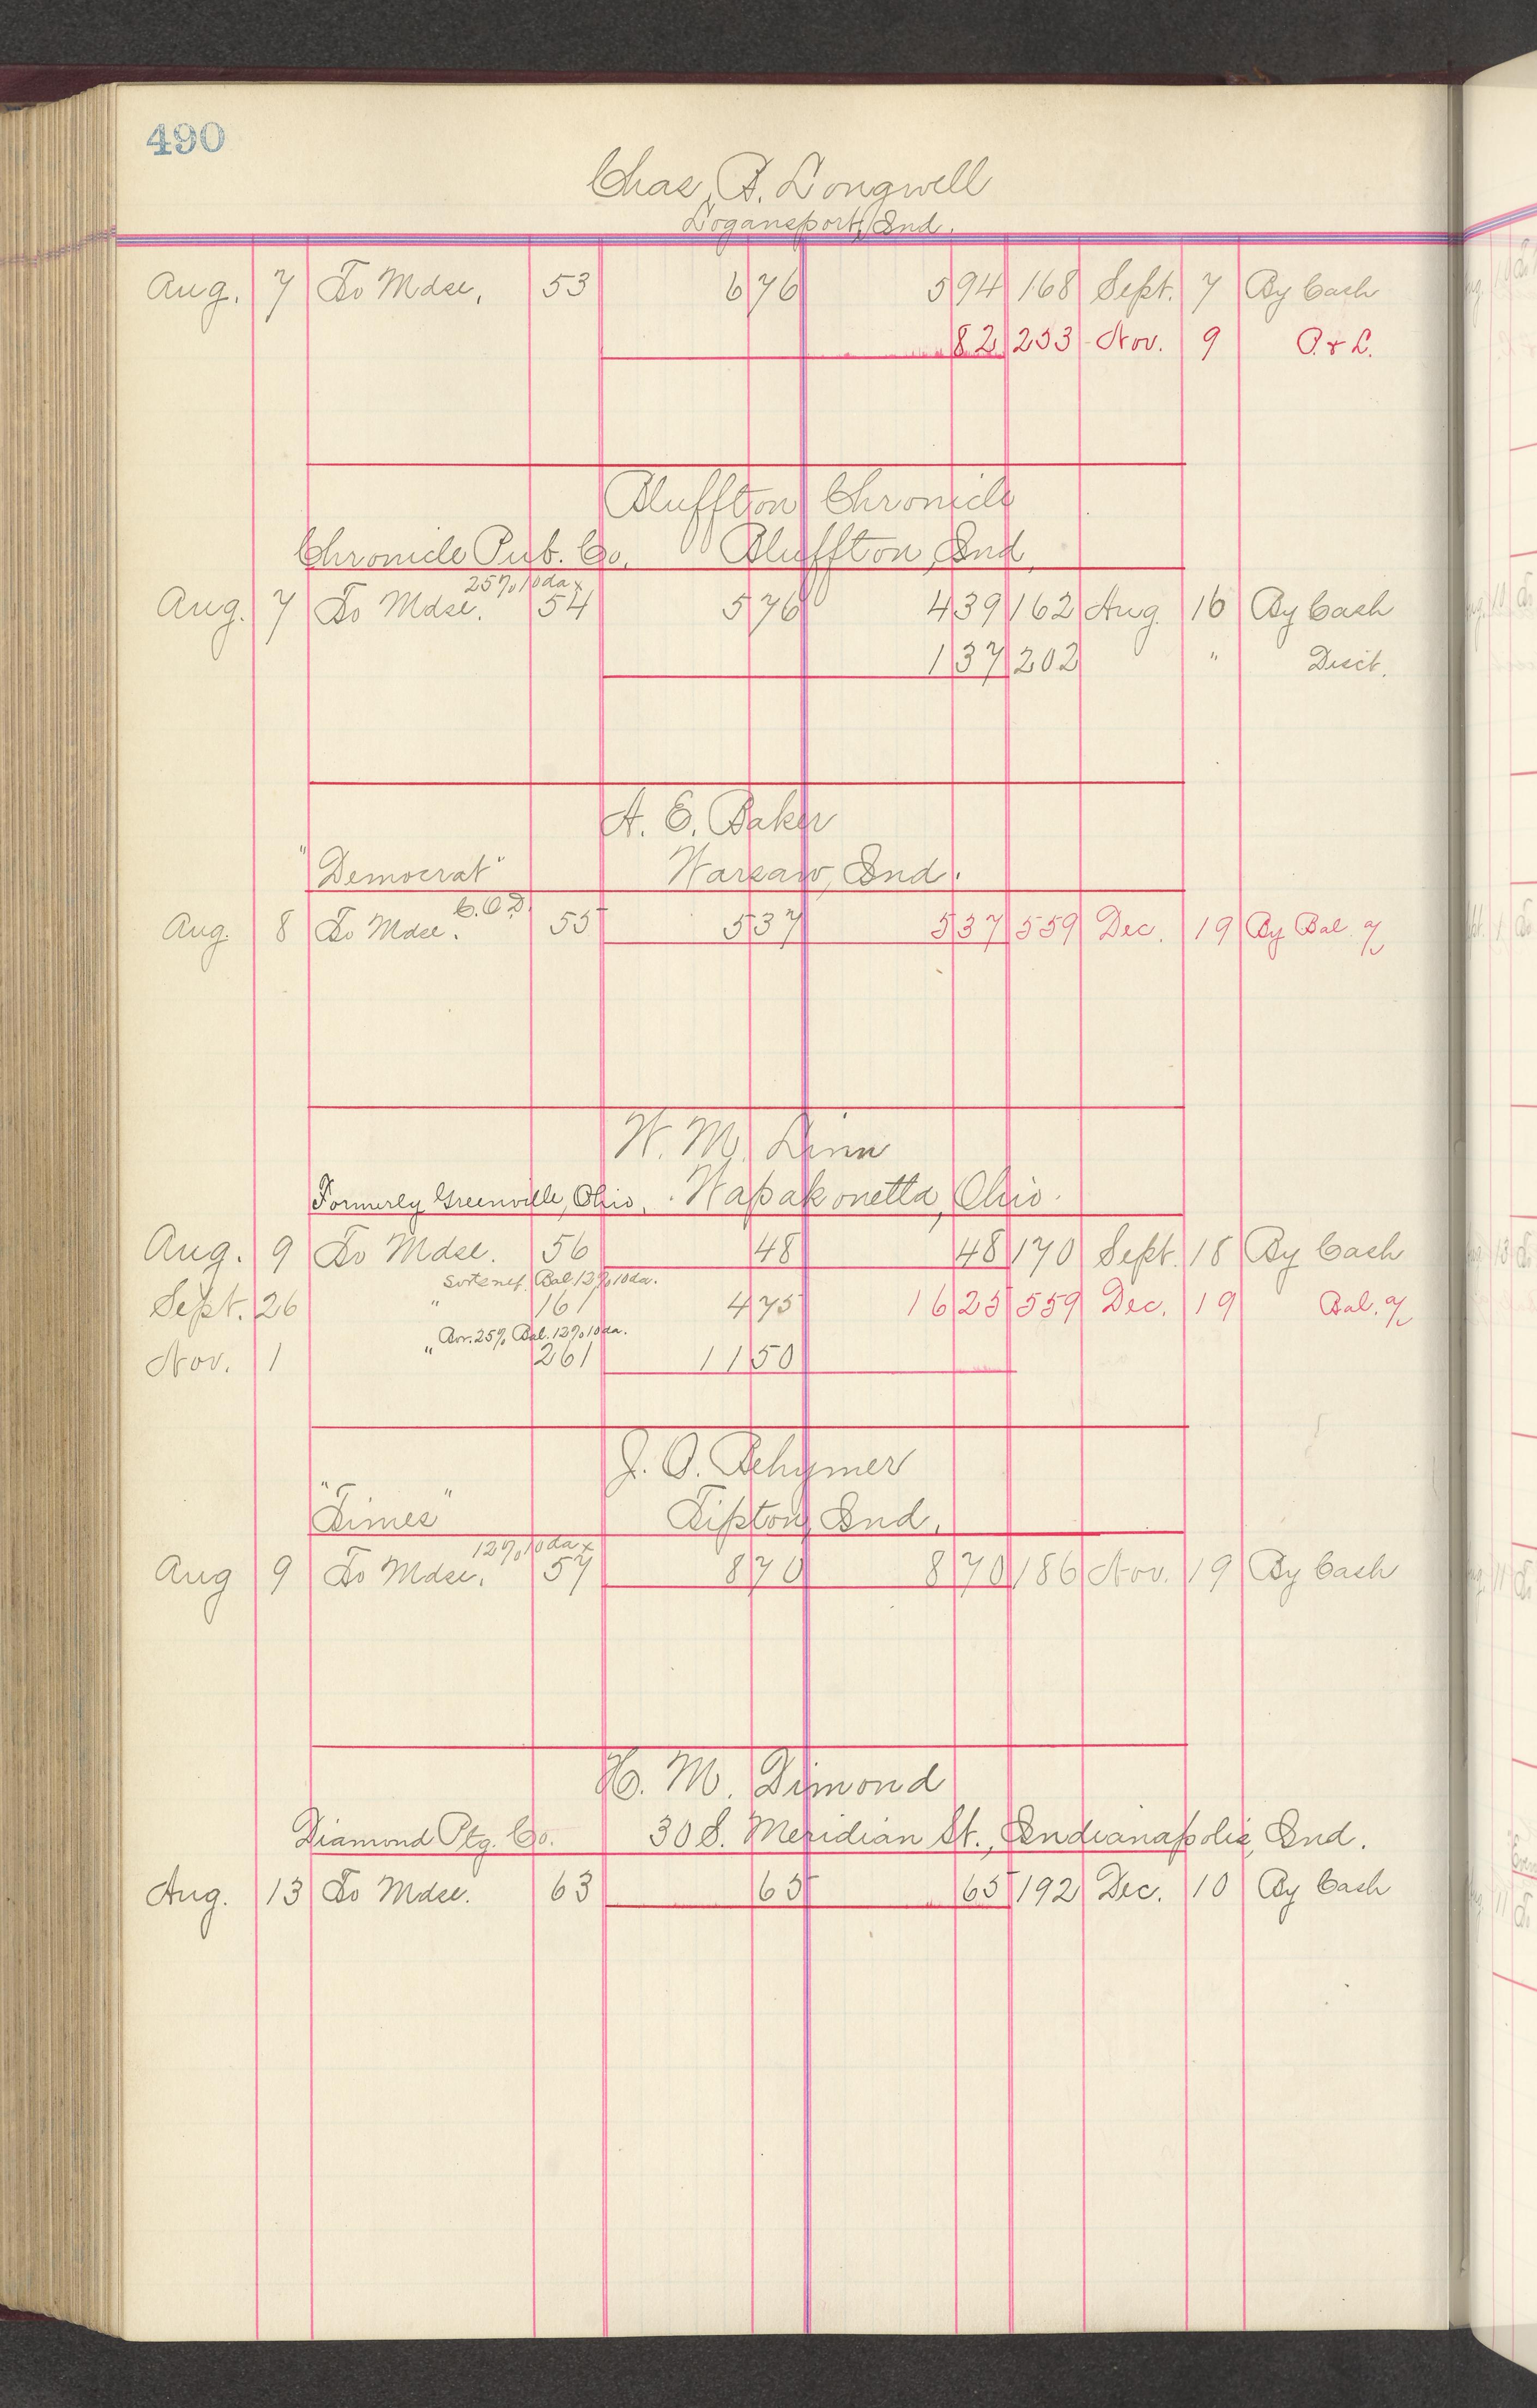 490
Chas. B. Longwell
Logansport, Ind.
Aug. 7 To Mdse. 53 6 76 5 94 168 Sept. 7 By Cash
82 253 Nov. 9 P. & L.
Bluffton Chronicle
Chronicle Pub. Co. Bluffton, Ind.
25% 10 da x
Aug. 7 To Mdse. 54 5 76 4 39 162 Aug. 16 By Cash
1 37 202 " Disct.
A. E. Baker
"Democrat" Warsaw, Ind.
C.O.D.
Aug. 8 To Mdse. 55 5 37 5 37 559 Dec. 19 By Bal. %
W. M. Linn
Formerly Greenville, Ohio. Wapakonetta, Ohio.
Aug. 9 To Mdse. 56 48 48 170 Sept. 18 By Cash
Bal. 12% 10 da.
Sept. 26 " 161 4 75 16 25 559 Dec. 19 Bal. %
Bor. 25% Bal. 12% 10 da.
Nov. 1 " 261 11 50
J. O. Behymer
"Times" Tipton, Ind.
12% 10 da x
Aug 9 To Mdse. 57 8 70 8 70 186 Nov. 19 By Cash
H. M. Dimond
Diamond Ptg. Co. 30 S. Meridian St., Indianapolis, Ind.
Aug. 13 To Mdse. 63 65 65 192 Dec. 10 By Cash